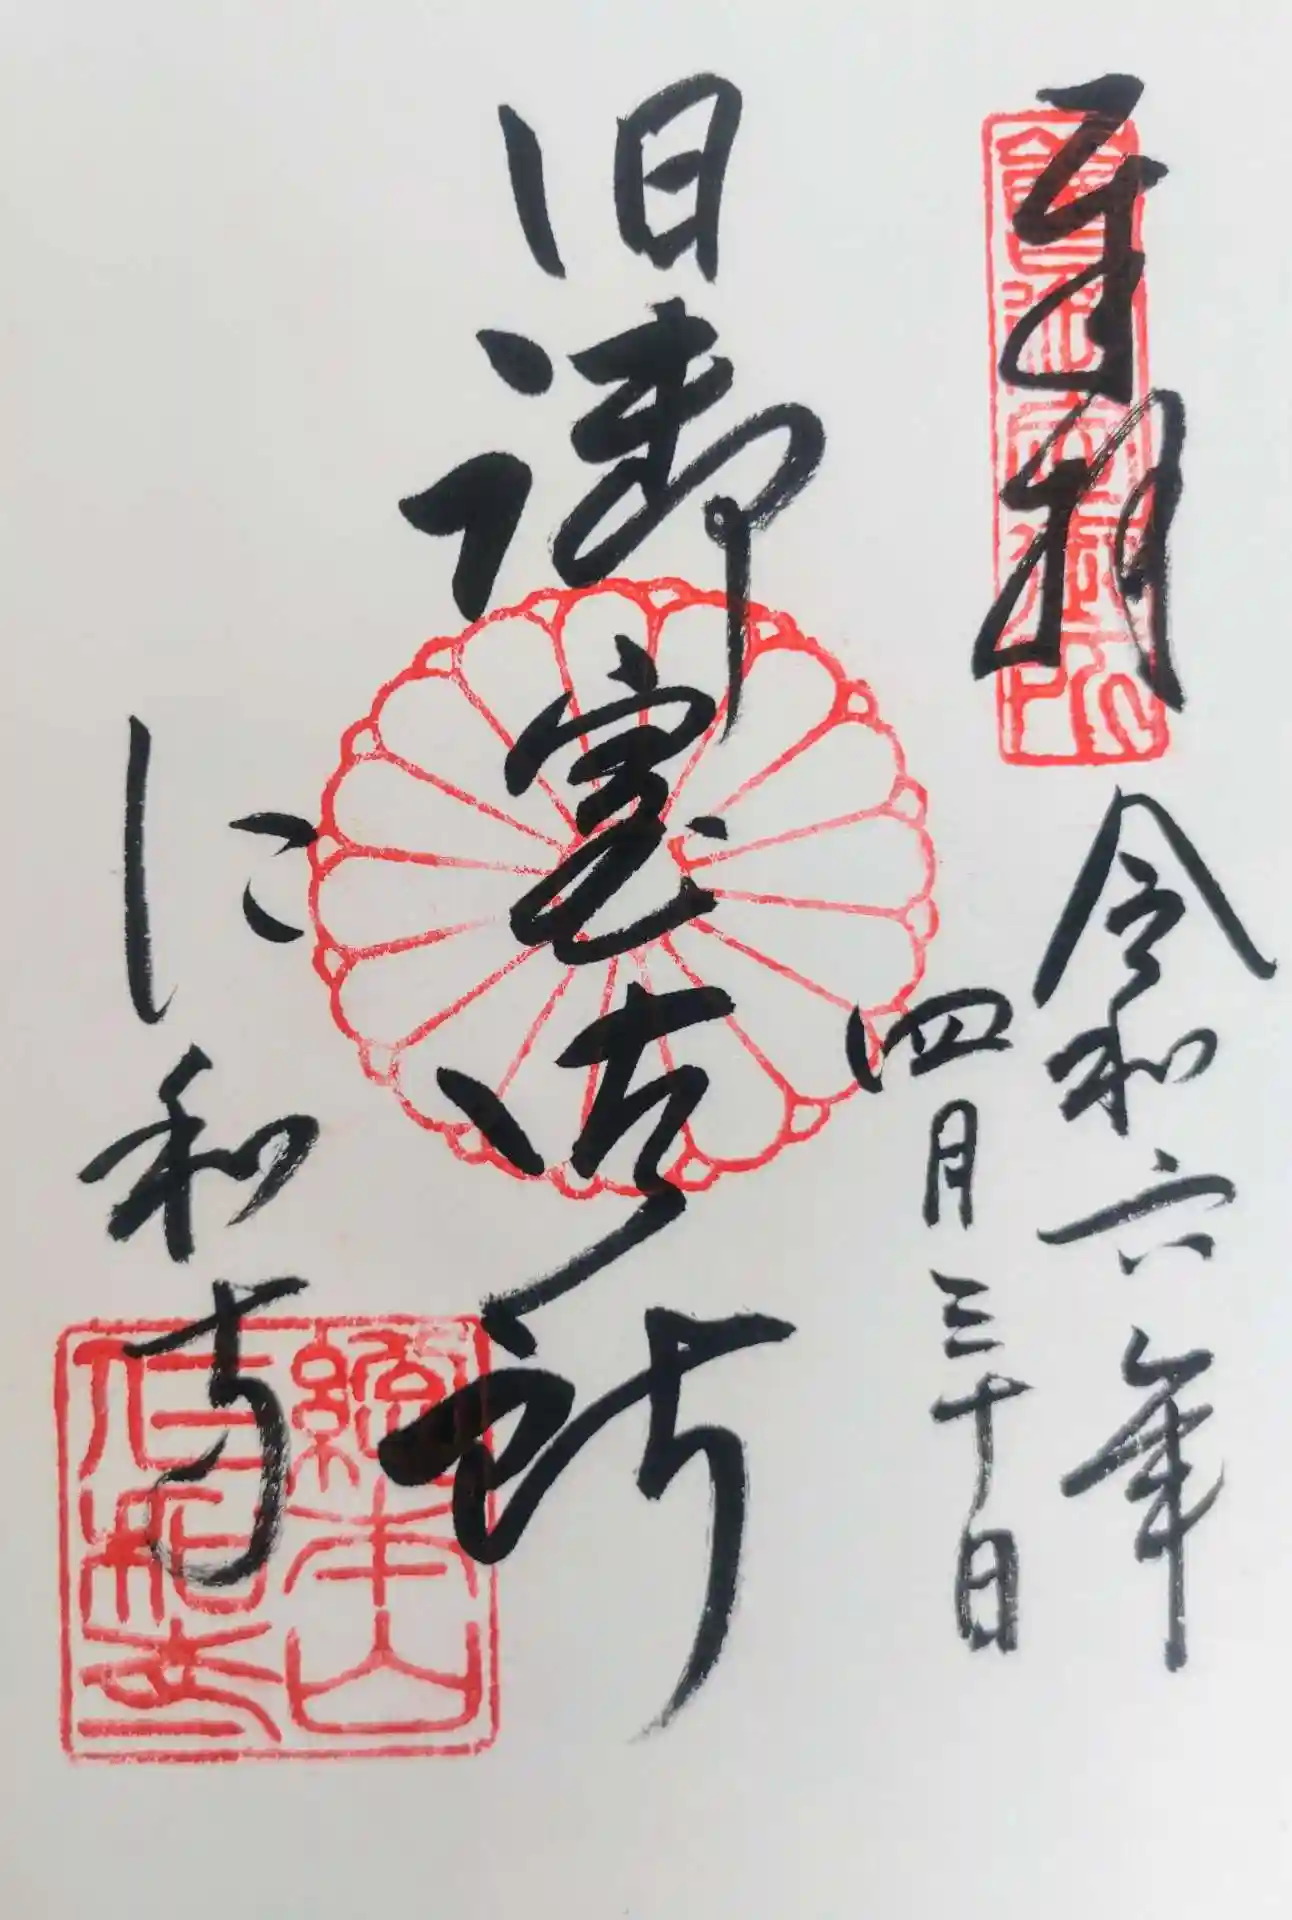 奉拝
舊御室御所
令和六年
四月三十日
旧御室御所
仁和寺
總本山
仁和寺